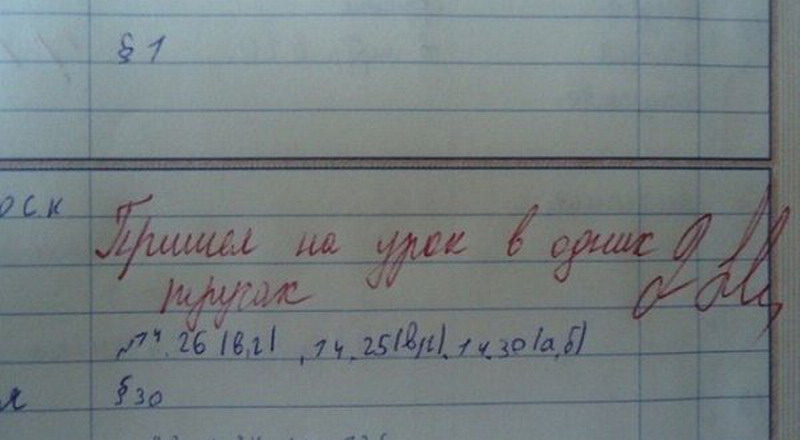 § 1
оск
Пришел на урок в одних 2
трусах
№14.26 (в,г), 14.25(в,г), 14.30(а,б)
§30